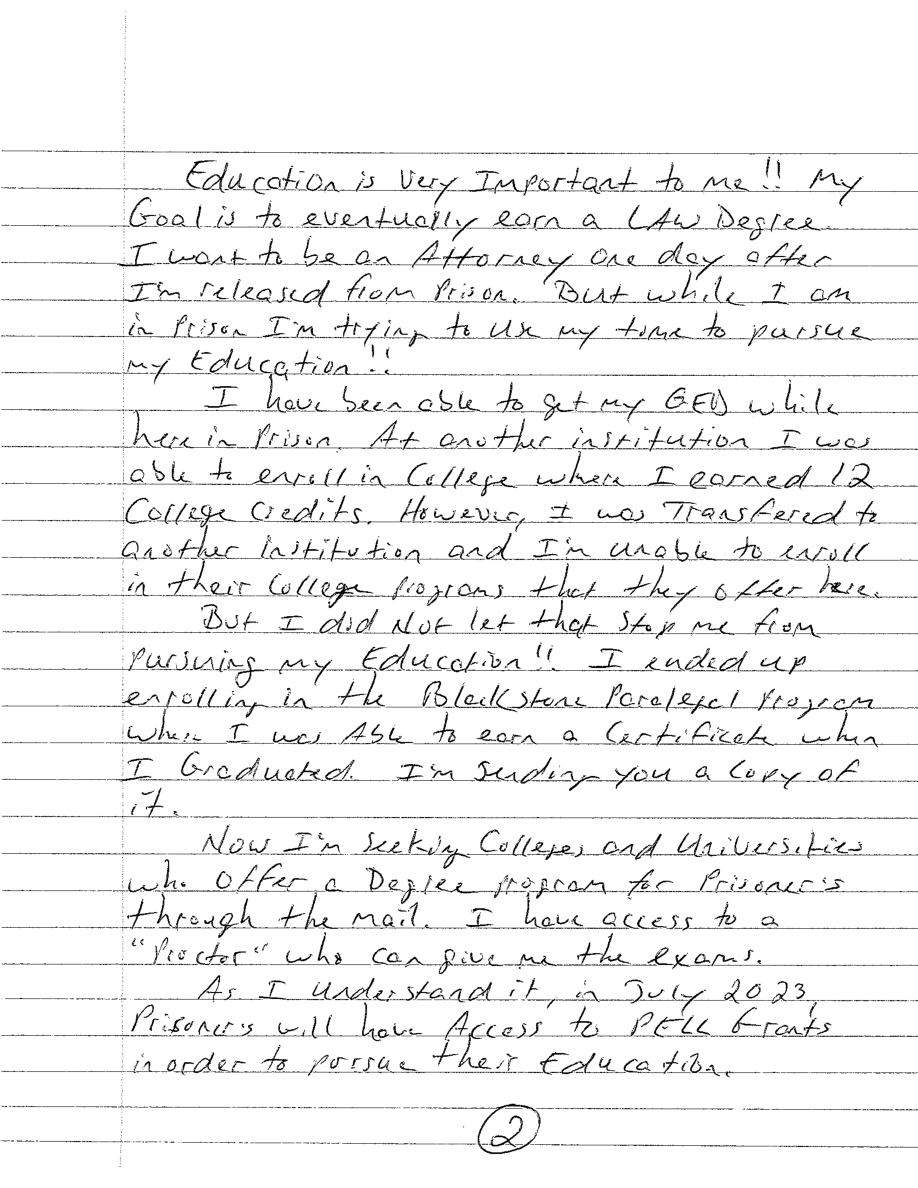 Education is Very Important to me!! My
Goal is to eventually earn a LAW Degree.
I want to be an Attorney one day after
I'm released from Prison. But while I am
in Prison I'm trying to use my time to pursue
my Education!!
I have been able to get my GED while
here in Prison. At another institution I was
able to enroll in College where I earned 12
College Credits. However, I was Transfered to
another institution and I'm unable to enroll
in their College programs that they offer here.
But I did Not let that stop me from
pursuing my Education!! I ended up
enrolling in the Blackstone Paralegal Program
where I was Able to earn a Certificate when
I Graduated. I'm sending you a Copy of
it.
Now I'm seeking Colleges and Universities
who Offer a Degree program for Prisoner's
through the mail. I have access to a
"Proctor" who can give me the exams.
As I understand it, in July 2023,
Prisoner's will have Access to PELL Grants
in order to pursue their Education.
2